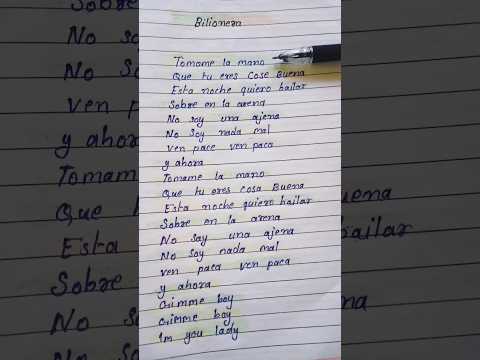 Bilionera
Tomame la mano
Que tu eres cose Buena
Esta noche quiero bailar
Sobre en la arena
No soy una ajena
No soy nada mal
ven pace ven paca
y ahora
Tomame la mano
Que tu eres cosa Buena
Esta noche quiero bailar
Sobre en la arena
No say una ajena
No soy nada mal
ven paca ven paca
y ahora
Gimme boy
Gimme boy
Im you lady